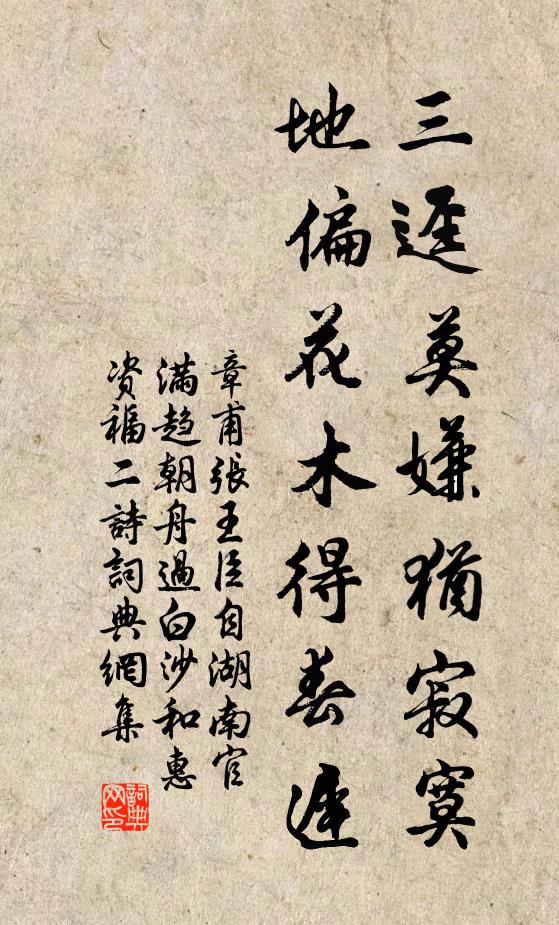 三逕莫嫌猶寂寞
地偏花木得春遲
章甫張王臣自湖南官
滿趋朝舟過白沙和惠
资福二詩詞典網集
詞典
网印